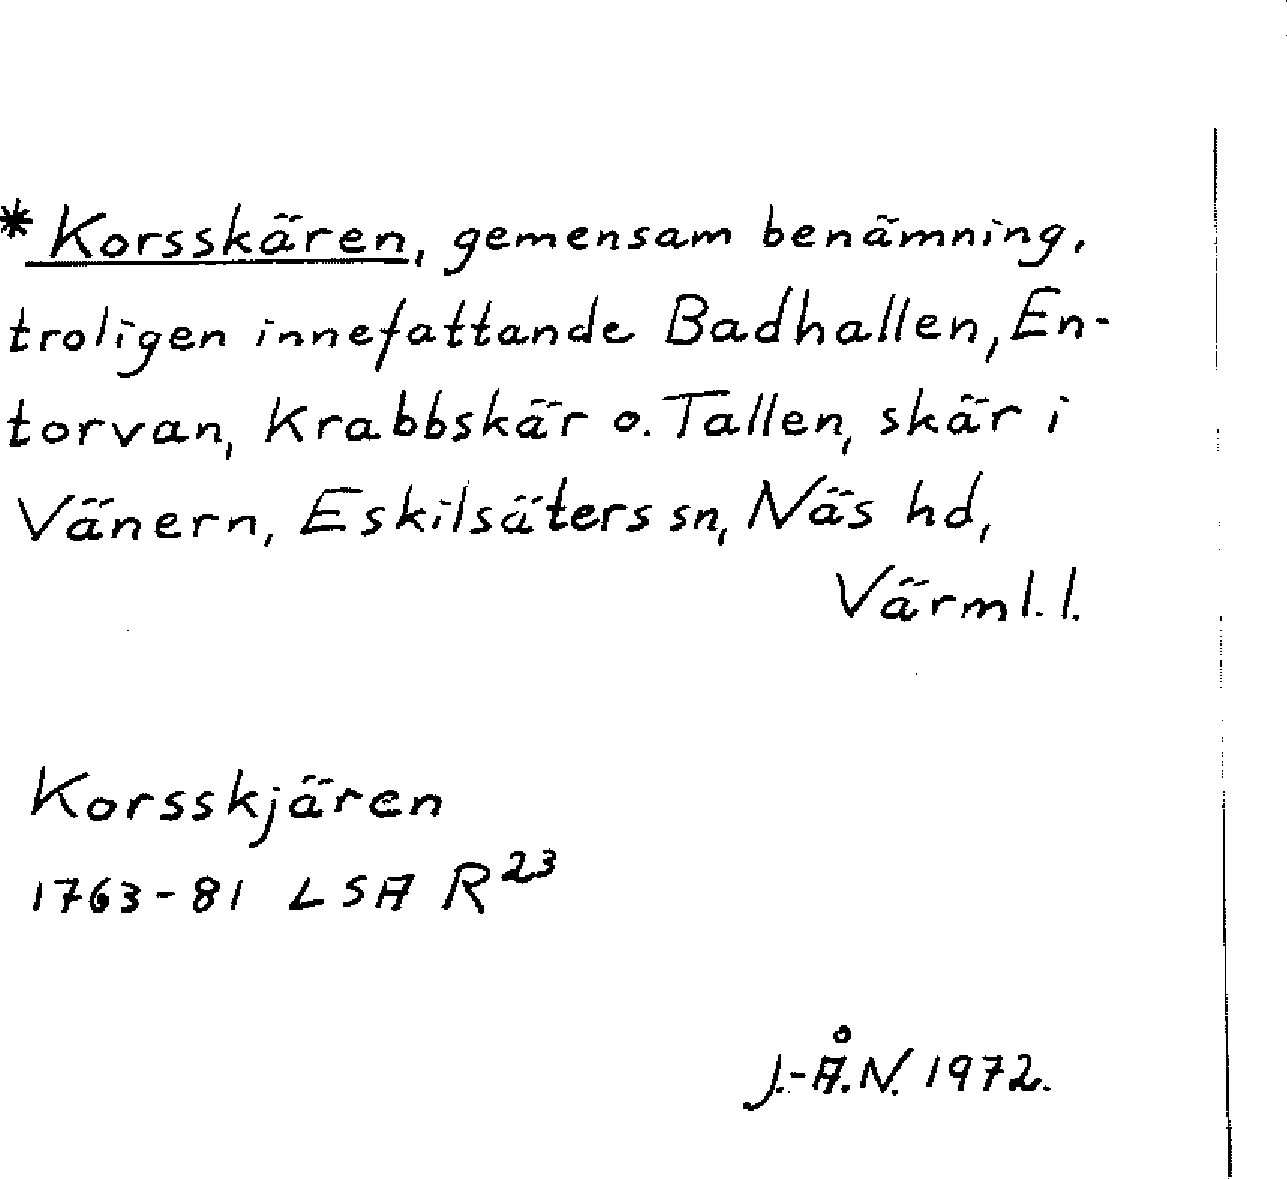 * Korsskären, gemensam benämning,
troligen innefattande Badhallen, En-
torvan, Krabbskär o. Tallen, skär i
Vänern, Eskilsäters sn, Näs hd,
Värml. l.
Korsskjären
1763-81 LSA R23
J.-Å.N. 1972.